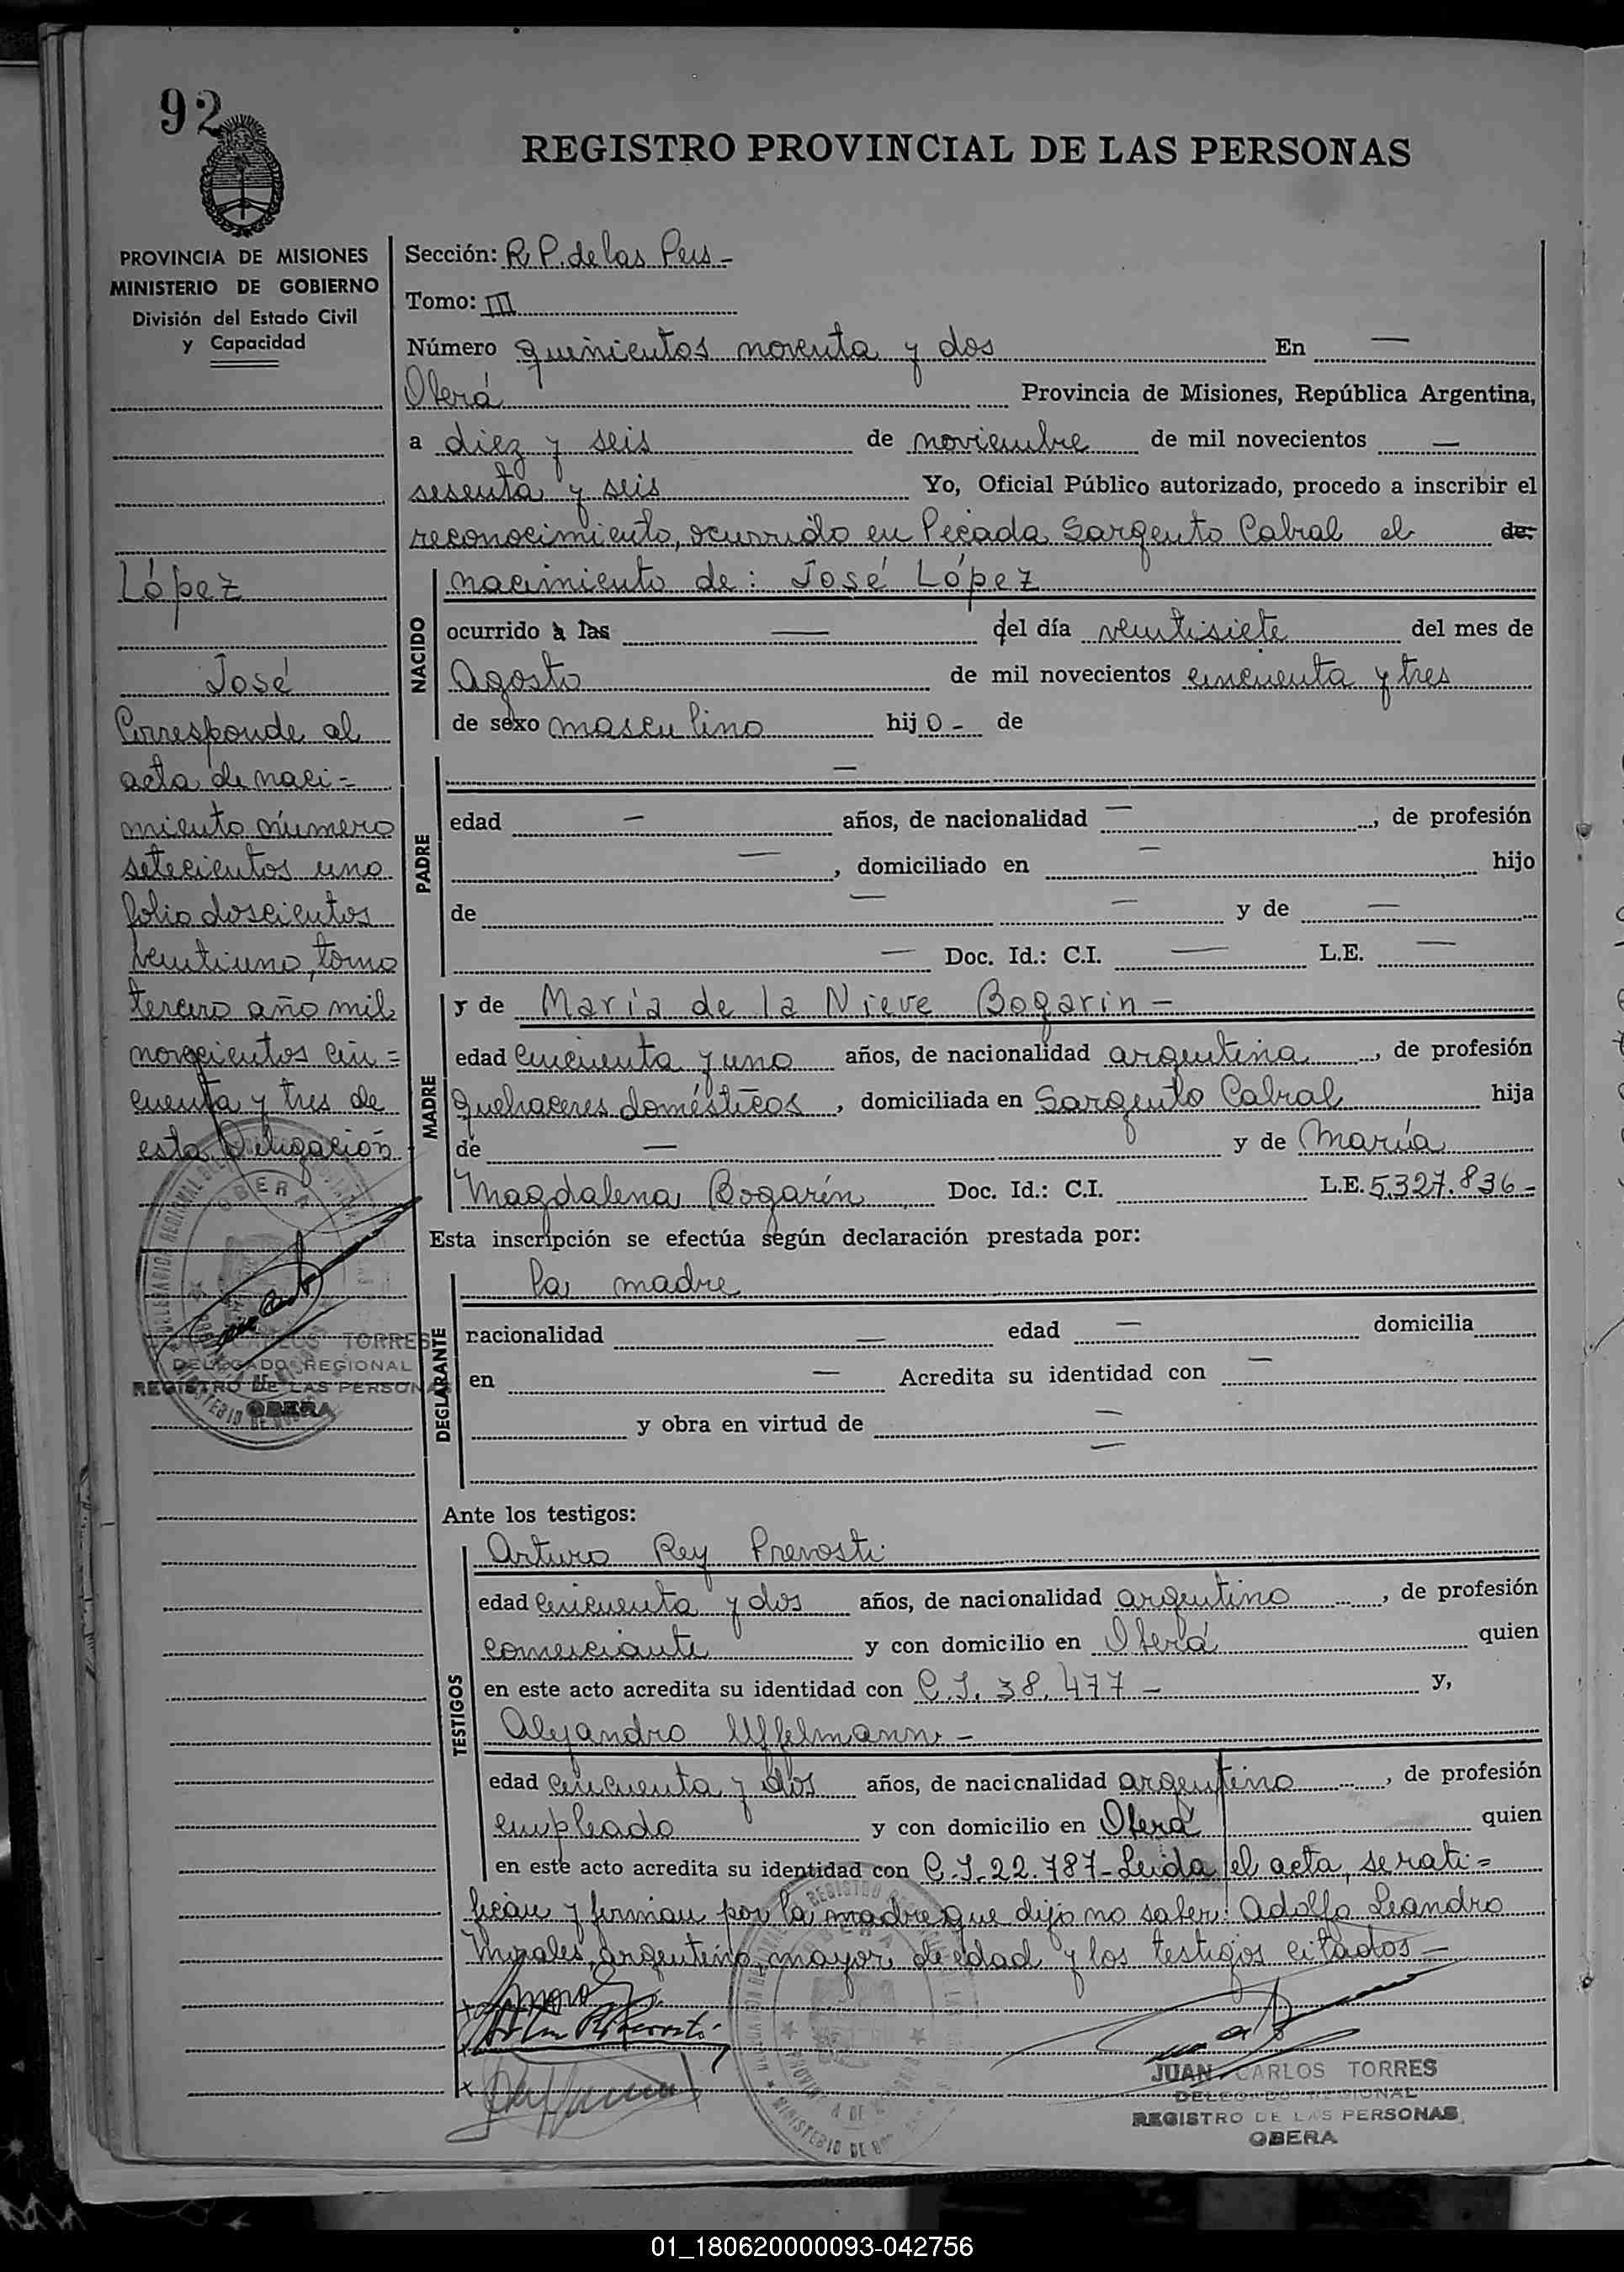 92
REGISTRO PROVINCIAL DE LAS PERSONAS
PROVINCIA DE MISIONES
MINISTERIO DE GOBIERNO
División del Estado Civil
y Capacidad
López
José
Corresponde al
acta de naci=
miento número
setecientos uno
folio doscientos
veintiuno, tomo
tercero año mil
novecientos cin=
cuenta y tres de
esta Delegación
OBERA
CARLOS TORRES
DELEGADO REGIONAL
REGISTRO DE LAS PERSONAS
OBERA
Sección: R. P. de las Pers -
Tomo: III
Número quinientos noventa y dos En —
Oberá Provincia de Misiones, República Argentina,
a diez y seis de noviembre de mil novecientos —
sesenta y seis Yo, Oficial Público autorizado, procedo a inscribir el
reconocimiento, ocurrido en Picada Sargento Cabral el de:
NACIDO
nacimiento de: José López
ocurrido a las — del día veintisiete del mes de
Agosto de mil novecientos cincuenta y tres
de sexo masculino hijo - de
PADRE
—
edad — años, de nacionalidad —, de profesión
—, domiciliado en — hijo
de — — y de —
— Doc. Id.: C.I. — L.E. —
MADRE
y de María de la Nieve Bogarin -
edad cincuenta y uno años, de nacionalidad argentina, de profesión
quehaceres domésticos, domiciliada en Sargento Cabral hija
de — y de María
Magdalena Bogarín Doc. Id.: C.I. L.E. 5.327.836-
Esta inscripción se efectúa según declaración prestada por:
DECLARANTE
la madre
nacionalidad — edad — domicilia
en — Acredita su identidad con —
y obra en virtud de —
—
Ante los testigos:
TESTIGOS
Arturo Rey Prevosti
edad cincuenta y dos años, de nacionalidad argentino, de profesión
comerciante y con domicilio en Oberá quien
en este acto acredita su identidad con C.I. 38.477 - y,
Alejandro Uffelmann -
edad cincuenta y dos años, de nacionalidad argentino, de profesión
empleado y con domicilio en Oberá quien
en este acto acredita su identidad con C.I. 22.787- Leida el acta, se rati=
fican y firman por la madre que dijo no saber: Adolfo Leandro
Morales, argentino, mayor de edad y los testigos citados -
JUAN CARLOS TORRES
DELEGADO REGIONAL
REGISTRO DE LAS PERSONAS
OBERA
01_180620000093-042756